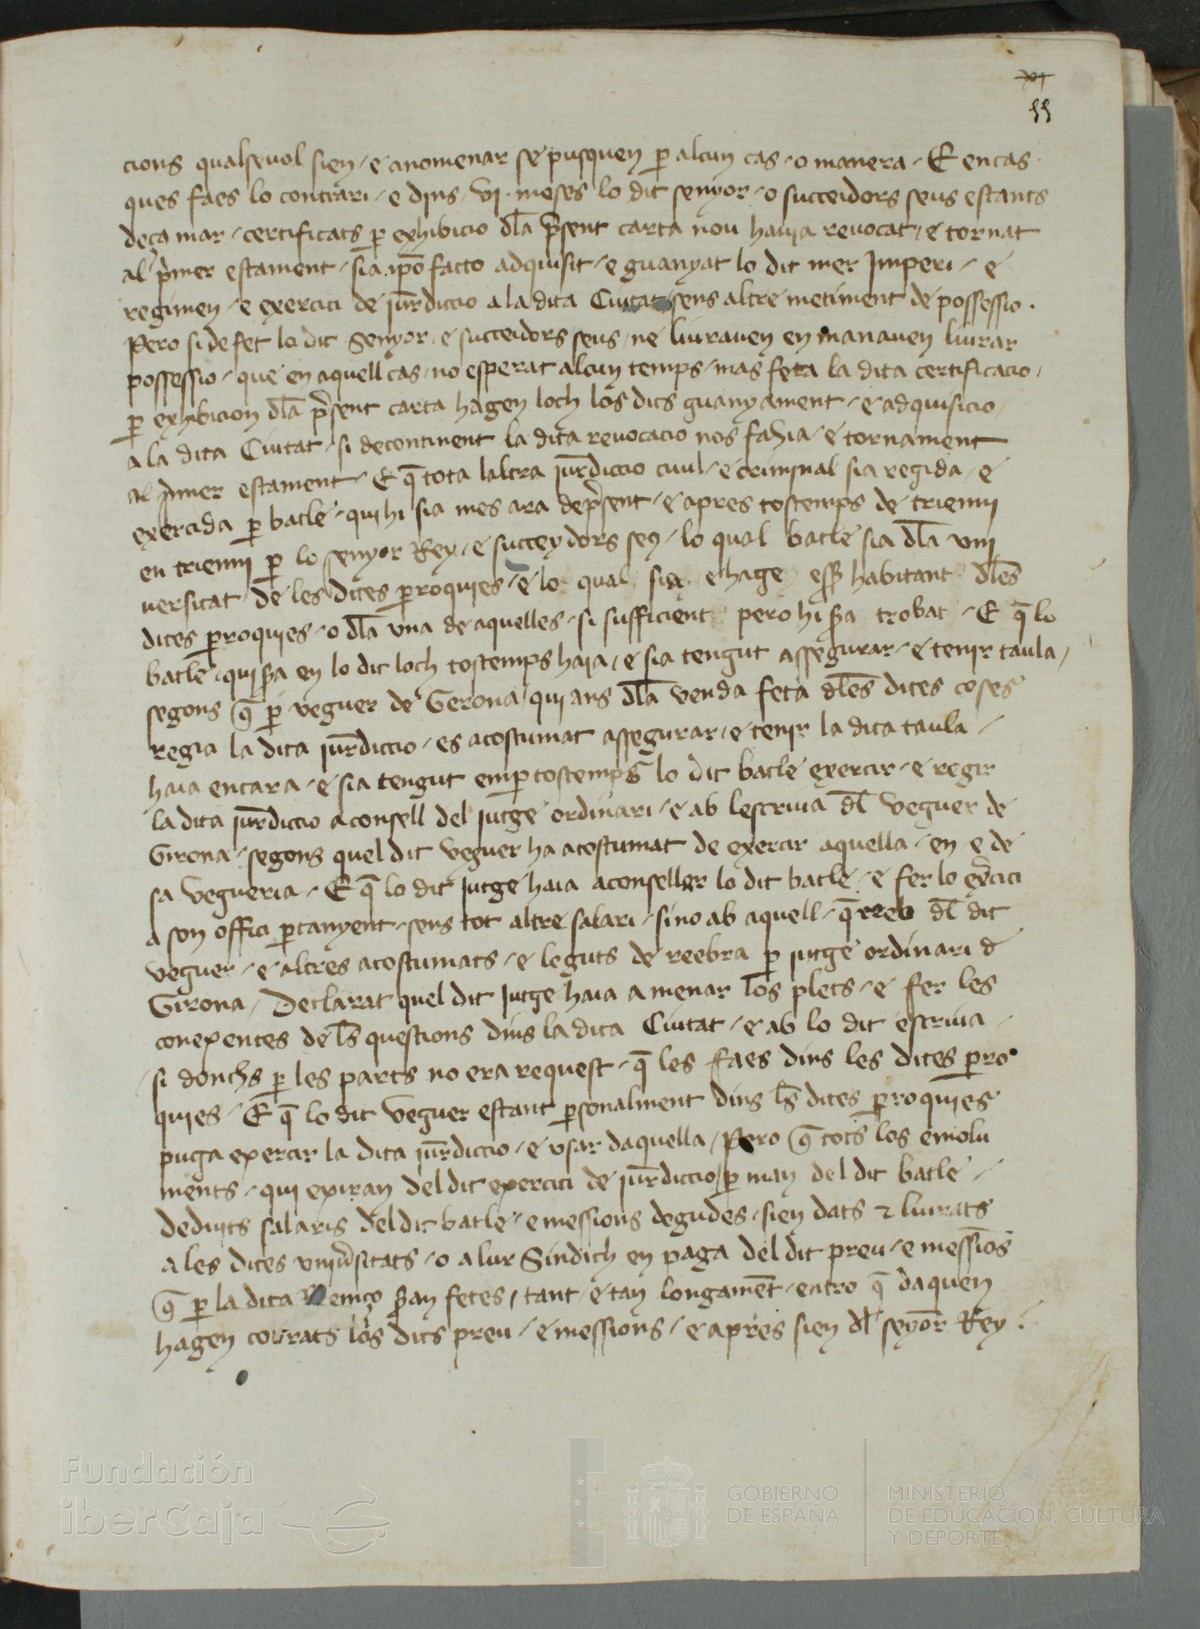 xi
55
cions qualsevol sien / e anomenar se pusquen p̱ alcun cas / o manera / E en cas
ques faes lo contrari / e dins / vi / meses lo dit senyor / o succeidors seus estants
deça mar / certificats p̱ exhibicio dl̄a p̄sent carta nou hauia reuocat / e tornat
al p̄mer estament / sia ip̄o facto adquisit / e guanyat lo dit mer Imperi / e
regimen / e exercici de jur̄diccio a la dita Ciutat sens altre metiment de possessio .
Pero si de fet lo dit Senyor / e succeidors seus / ne liurauen en manauen liurar
possessio / que en aquell cas / no esperat alcun temps / mas feta la dita certificacio /
p̱ exhibicion dl̄a p̄sent carta hagen loch los dits guanyament / e adquisicio /
a la dita Ciutat / si decontinent la dita reuocacio nos fahia / e tornament
al p̄mer estament / E q̄ tota laltra jur̄diccio ciuil / e criminal sia regida / e
exercida p̱ batle / qui hi sia mes ara dep̄sent / e apres tostemps de trienni
en trienni p̱ lo senyor Rey / e succeydors seus / lo qual batle sia dl̄a vni
uersitat de les dites p̱roquies / e lo qual sia e hage habitant dl̄es
dites p̱roquies / o dl̄a vna de aquelles / si sufficient pero hi s̄a trobat / E q̄ lo
batle / qui s̄a en lo dit loch tostemps haia / e sia tengut assegurar / e tenir taula /
segons q̄ p̱ veguer de Gerona / qui ans dl̄a venda feta dl̄es dites coses
regia la dita jur̄diccio / es acostumat assegurar / e tenir la dita taula /
haia encara / e sia tengut emp̱ tostemps lo dit batle exercir / e regir
la dita jur̄diccio a consell del jutge ordinari / e ab lescriua dl̄ veguer de
Girona / segons quel dit veguer ha acostumat de exercir aquella / en e de
sa vegueria / E q̄ lo dit jutge haia aconsellar lo dit batle / e fer lo ex̄cici
a son offici p̱tanyent / sens tot altre salari / sino ab aquell / q̄ reeb dl̄ dit
veguer / e altres acostumats / e leguts de reebra p̱ jutge ordinari d̄
Girona / Declarat quel dit jutge haia a menar los plets / e fer les
conexences de ls̄ questions dins la dita Ciutat / e ab lo dit escriua /
si donchs p̱ les parts no era request / q̄ les faes dins les dites p̱ro
quies / E q̄ lo dit veguer estant p̱sonalment dins ls̄ dites p̱roquies
puga exercir la dita jur̄diccio / e vsar daquella / Pero q̄ tots los emolu
ments / qui exiran del dit exercici de jur̄diccio / p̱ man del dit batle /
deduits salaris del dit batle / e messions degudes / sien dats & liurats
a les dites vniūsitats / o a lur Sindich en paga del dit preu / e messions
q̄ p̱ la dita s̄an fetes / tant / e tan longamēt / entro q̄ daquen
hagen cobrats los dits preu / e messions / e apres sien dl̄ senyor Rey .
Fundación
iberCaja
GOBIERNO
DE ESPAÑA
MINISTERIO
DE EDUCACIÓN, CULTURA
Y DEPORTE